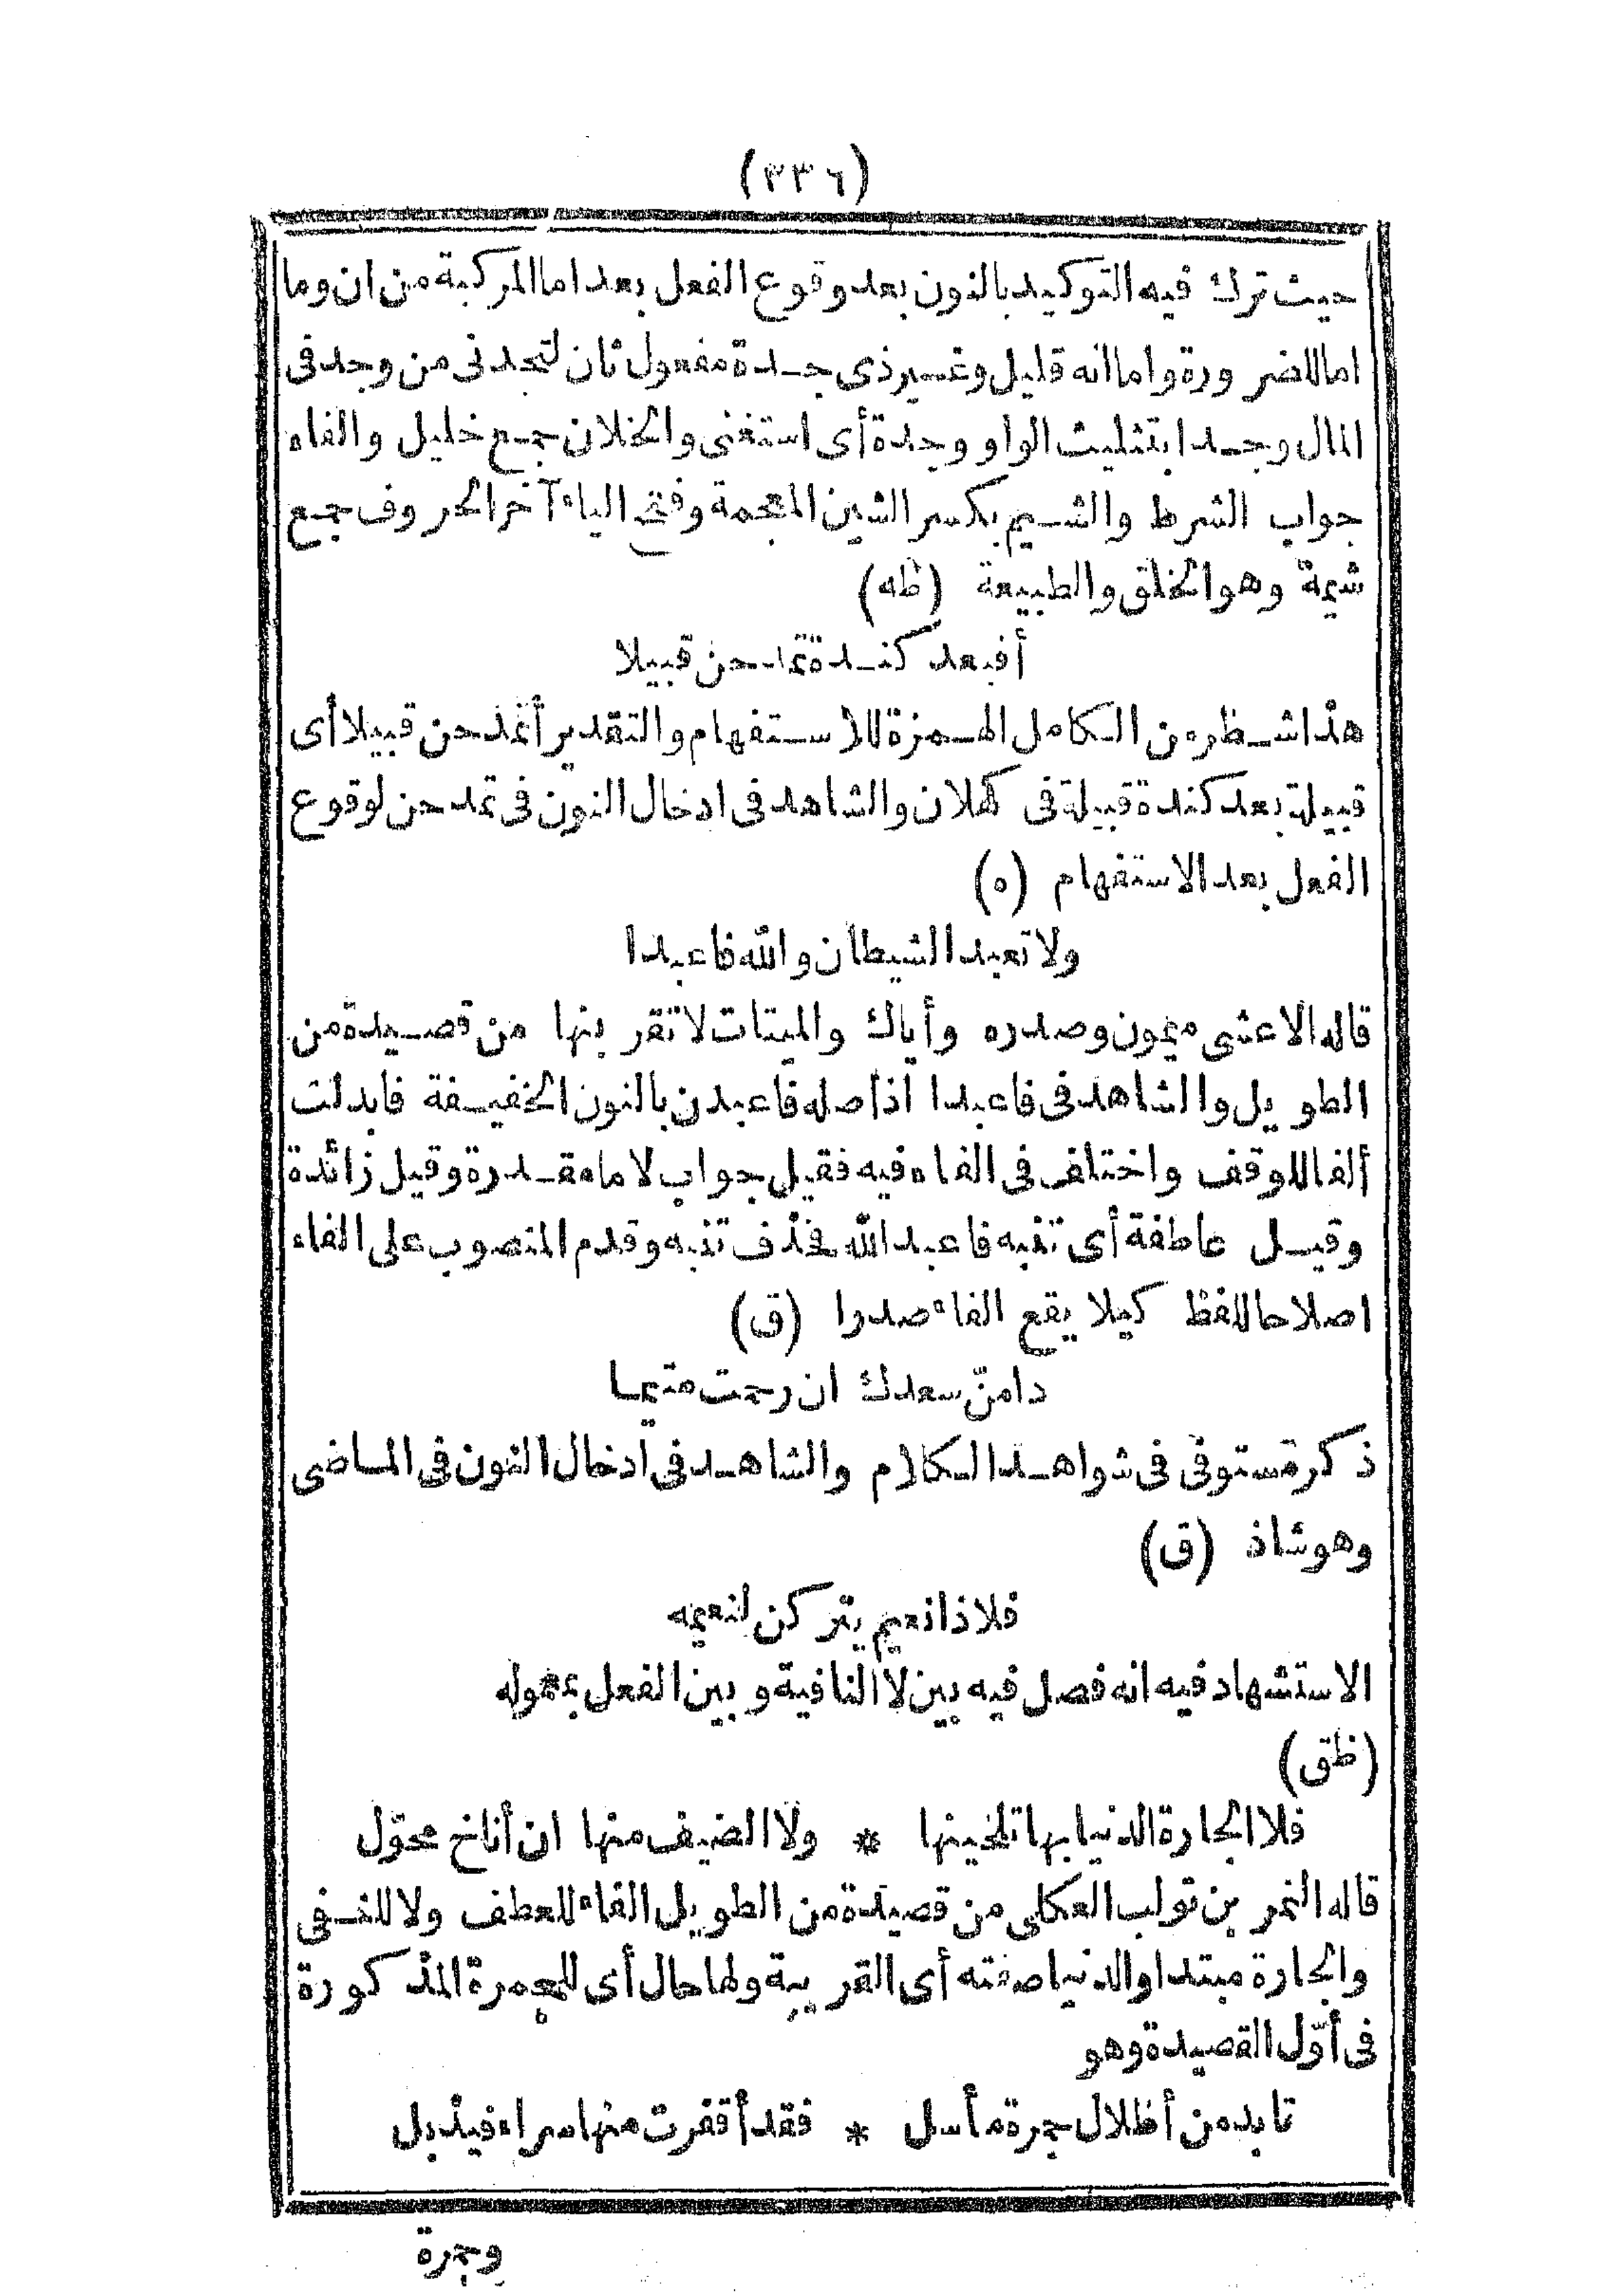 (٣٣٦)
حيث ترك فيه التوكيد بالنون بعد وقوع الفعل بعد اما المركبة من ان وما
اما للضرورة واما انه قليل وغير ذى جدة مفعول ثان لتجدنى من وجد فى
المال وجدا بتثليث الواو وجدة أى استغنى والخلان جمع خليل والفاء
جواب الشرط والشيم بكسر الشين المعجمة وفتح الياء آخر الحروف جمع
شيمة وهو الخلق والطبيعة (ظه)
أفبعد كندة تمدحن قبيلا
هذا شطر من الكامل الهمزة للاستفهام والتقدير أتمدحن قبيلا أى
قبيلة بعد كندة قبيلة فى كهلان والشاهد فى ادخال النون فى تمدحن لوقوع
الفعل بعد الاستفهام (ه)
ولا تعبد الشيطان والله فاعبدا
قاله الاعشى ميمون وصدره وأياك والميتات لا تقربنها من قصيدة من
الطويل والشاهد فى فاعبدا اذ أصله فاعبدن بالنون الخفيفة فابدلت
ألفا للوقف واختلف فى الفاء فيه فقيل جواب لا ما مقدرة وقيل زائدة
وقيل عاطفة أى تنبه فاعبد الله فحذف تنبه وقدم المنصوب على الفاء
اصلاحا للفظ كيلا يقع الفاء صدرا (ق)
دامنّ سعدك ان رحمت متيما
ذكر مستوفى فى شواهد الكلام والشاهد فى ادخال النون فى الماضى
وهو شاذ (ق)
فلا ذا نعيم يتركن لنعيمه
الاستشهاد فيه انه فصل فيه بين لا النافية وبين الفعل بمعموله
(ظق)
فلا الجارة الدنيا بها تلحينها * ولا الضيف منها ان أناخ محوّل
قاله النمر بن تولب العكلى من قصيدة من الطويل الفاء للعطف ولا للنفى
والجارة مبتدا والدنيا صفته أى القريبة ولها حال أى للجمرة المذكورة
فى أوّل القصيدة وهو
تابد من أطلال جمرة مأسل * فقد أقفرت منها سراء فيذبل
وجمرة